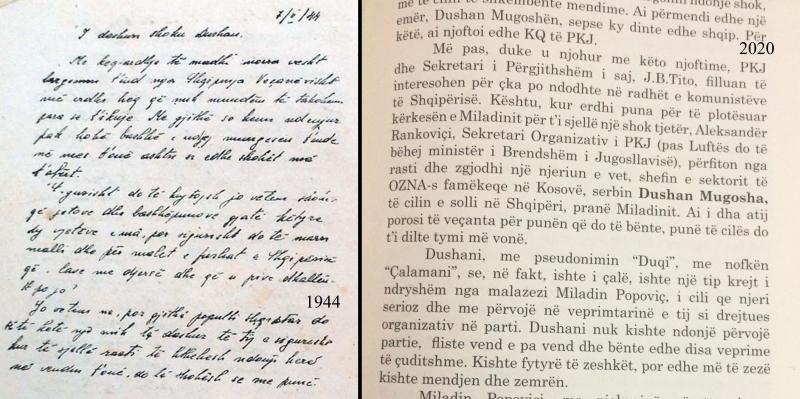 7/V/44
I dashur shoku Dushan.
Me keqardhje të madhe mora vesht
largimin t'ënd nga Shqipnia Veçanërisht
më erdhi keq që nuk mundëm të takohem
para se t'ikje. Me gjithë se kemi ndenjur
pak kohë bashkë
më mes t'onë është si edhe shokët më
t'afërt.
Sigurisht do të kujtojsh jo vetëm
që jetove dhe bashkëpunove gjatë këtyre
dy vjetëve e ma, por sigurisht do të marri
malli dhe për malet e fushat e Shqipërisë
që i lave me djersë dhe që u pive dhallën-
Apo jo!
Jo vetëm ne, por gjithë populli Shqiptar do
të të ketë një mik të dashur të tij e sigurisht
kur të vjellë rasti të kthehesh ndonjë herë
në vendin t'onë, do të shohësh se me punë
1944
më të cilin të shkëmbente mendime. Ai përmendi edhe një
emër, Dushan Mugoshën, sepse ky dinte edhe shqip. Për
këtë, ai njoftoi edhe KQ të PKJ.
2020
Më pas, duke u njohur me këto njoftime, PKJ
dhe Sekretari i Përgjithshëm i saj, J.B.Tito, filluan të
interesohen për çka po ndodhte në radhët e komunistëve
të Shqipërisë. Kështu, kur erdhi puna për të plotësuar
kërkesën e Miladinit për t'i sjellë një shok tjetër, Aleksandër
Rankoviçi, Sekretari Organizativ i PKJ (pas Luftës do të
bëhej ministër i Brendshëm i Jugosllavisë), përfiton nga
rasti dhe zgjodhi një njeriun e vet, shefin e sektorit të
OZNA-s famëkeqe në Kosovë, serbin Dushan Mugosha,
të cilin e solli në Shqipëri, pranë Miladinit. Ai i dha atij
porosi të veçanta për punën që do të bënte, punë të cilës do
t'i dilte tymi më vonë.
Dushani, me pseudonimin “Duqi”, me nofkën
“Çalamani”, se, në fakt, ishte i çalë, ishte një tip krejt i
ndryshëm nga malazezi Miladin Popoviç, i cili qe njeri
serioz dhe me përvojë në veprimtarinë e tij si drejtues
organizativ në parti. Dushani nuk kishte ndonjë përvojë
partie, fliste vend e pa vend dhe bënte edhe disa veprime
të çuditshme. Kishte fytyrë të zeshkët, por edhe më të zezë
kishte mendjen dhe zemrën.
Miladin Popoviçi, me